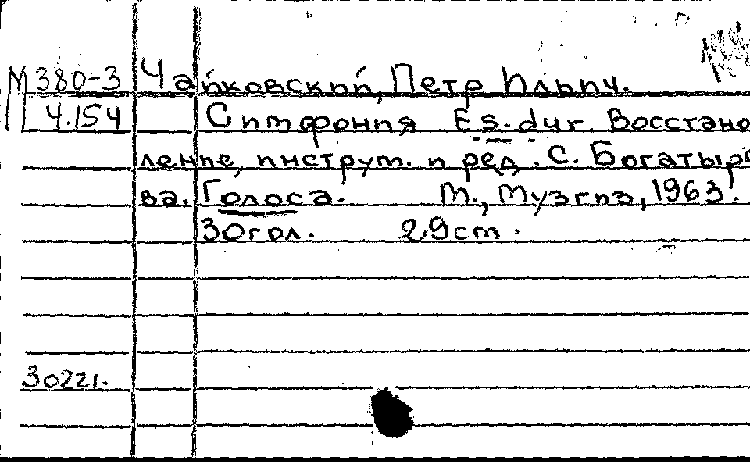 М380-3 Чайковский, Петр Ильич.
Ч.154 Симфония Es-dur. Восстанов
ление, инструм. и ред. С. Богатырё
ва. Голоса. М., Музгиз, 1963.
30 гол. 29 cm.
30221.